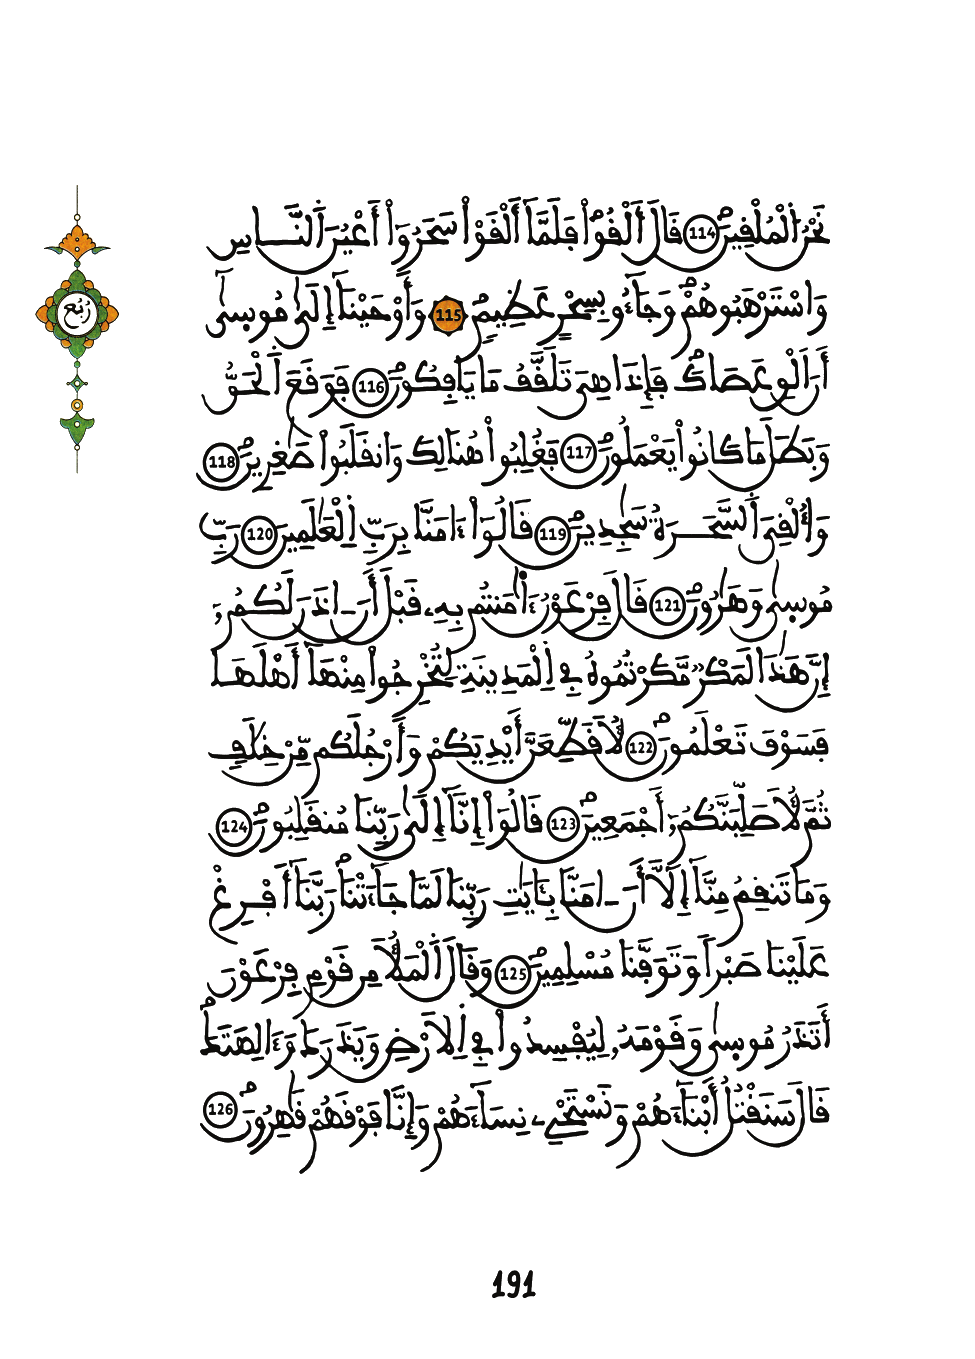 نَحْنُ اُ۬لْمُلْقِينَۖ 114 قَالَ أَلْقُواْۖ فَلَمَّآ أَلْقَوْاْ سَحَرُوٓاْ أَعْيُنَ اَ۬لنَّاسِ
وَاسْتَرْهَبُوهُمْۖ وَجَآءُو بِسِحْرٍ عَظِيمٖۖ 115 وَأَوْحَيْنَآ إِلَىٰ مُوسِىٰٓ
رُبُع
أَنَ اَلْقِ عَصَاكَۖ فَإِذَا هِيَ تَلَقَّفُ مَا يَافِكُونَۖ 116 فَوَقَعَ اَ۬لْحَقُّ
وَبَطَلَ مَا كَانُواْ يَعْمَلُونَۖ 117 فَغُلِبُواْ هُنَالِكَ وَانقَلَبُواْ صَٰغِرِينَۖ 118
وَأُلْقِيَ اَ۬لسَّحَرَةُ سَٰجِدِينَۖ 119 قَالُوٓاْ ءَامَنَّا بِرَبِّ اِ۬لْعَٰلَمِينَ 120 رَبِّ
مُوسِىٰ وَهَٰرُونَۖ 121 قَالَ فِرْعَوْنُ ءَا۬مَنتُم بِهِۦ قَبْلَ أَنَ اٰذَنَ لَكُمُۥٓ
إِنَّ هَٰذَا لَمَكْرٞ مَّكَرْتُمُوهُ فِے اِ۬لْمَدِينَةِ لِتُخْرِجُواْ مِنْهَآ أَهْلَهَا
فَسَوْفَ تَعْلَمُونَۖ 122 لَأُقَطِّعَنَّ أَيْدِيَكُمْ وَأَرْجُلَكُم مِّنْ خِلَٰفٖ
ثُمَّ لَأُصَلِّبَنَّكُمُۥٓ أَجْمَعِينَۖ 123 قَالُوٓاْ إِنَّآ إِلَىٰ رَبِّنَا مُنقَلِبُونَۖ 124
وَمَا تَنقِمُ مِنَّآ إِلَّآ أَنَ اٰمَنَّا بِـَٔايَٰتِ رَبِّنَا لَمَّا جَآءَتْنَاۖ رَبَّنَآ أَفْرِغْ
عَلَيْنَا صَبْراٗ وَتَوَفَّنَا مُسْلِمِينَۖ 125 وَقَالَ اَ۬لْمَلَأُ مِن قَوْمِ فِرْعَوْنَ
أَتَذَرُ مُوسِىٰ وَقَوْمَهُۥ لِيُفْسِدُواْ فِے اِ۬لْأَرْضِ وَيَذَرَكَ وَءَالِهَتَكَۖ
قَالَ سَنَقْتُلُ أَبْنَآءَهُمْ وَنَسْتَحْيِے نِسَآءَهُمْ وَإِنَّا فَوْقَهُمْ قَٰهِرُونَۖ 126
191